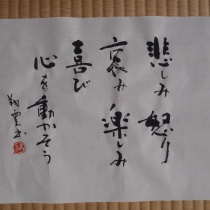 悲しみ 怒り
哀み 楽しみ
喜び
心を動かそう